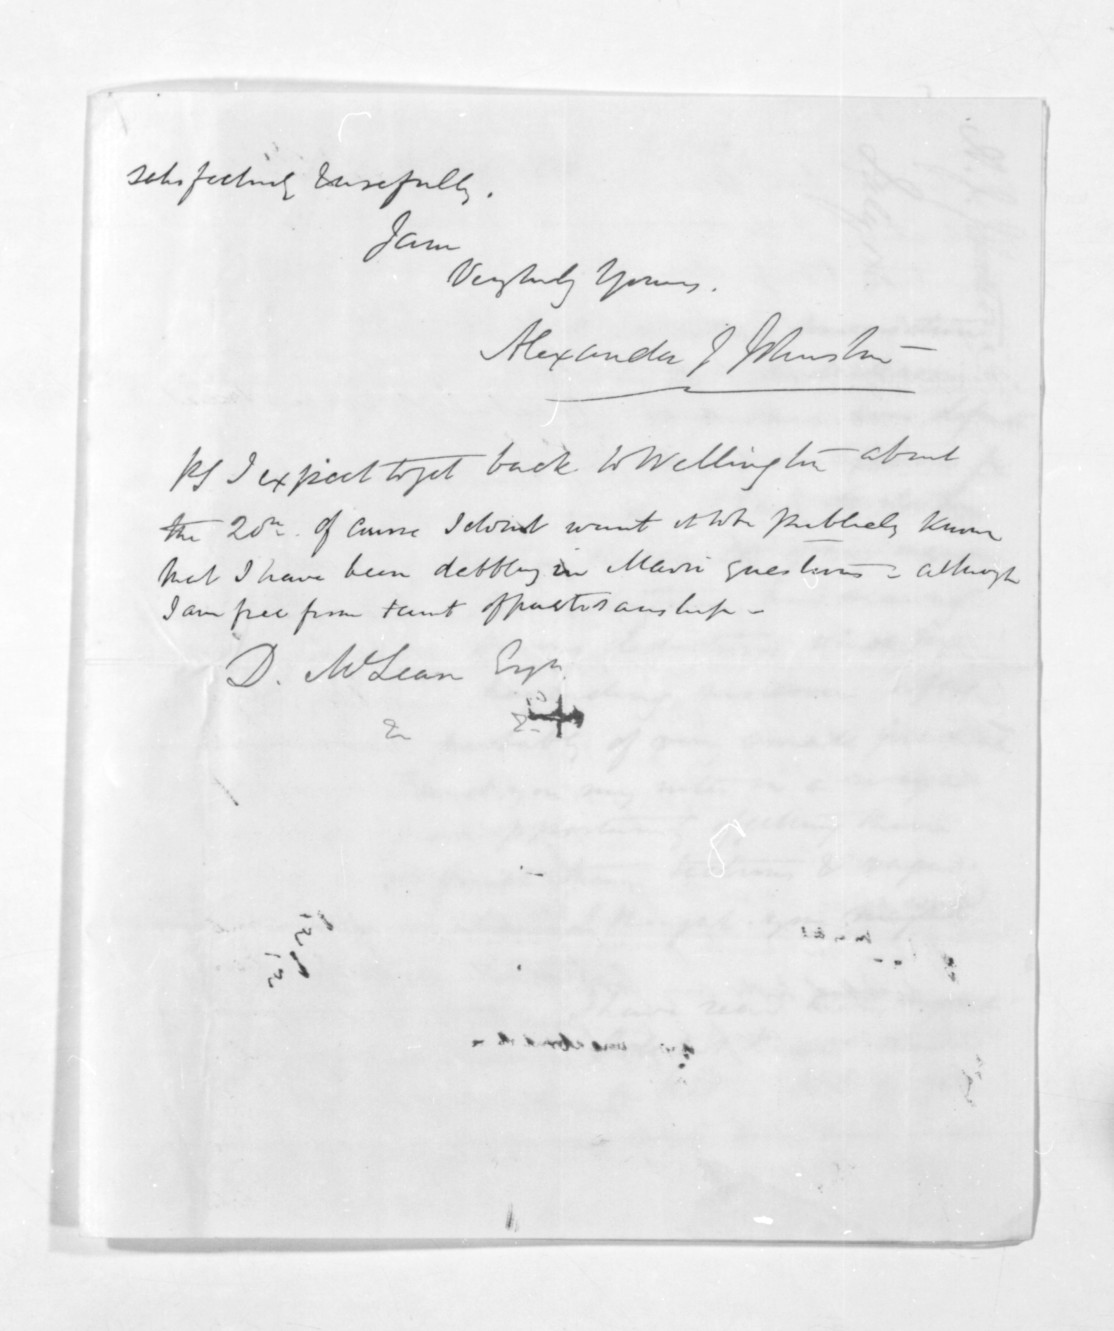 satisfactorily & usefully.
I am
Very truly Yours.
Alexander J Johnston
PS I expect to get back to Wellington about
the 20th. of course I dont want it to be publicly known
that I have been dabbling in Maori questions - although
I am free from taint of partizanship -
D. McLean Esqr.
&c &c